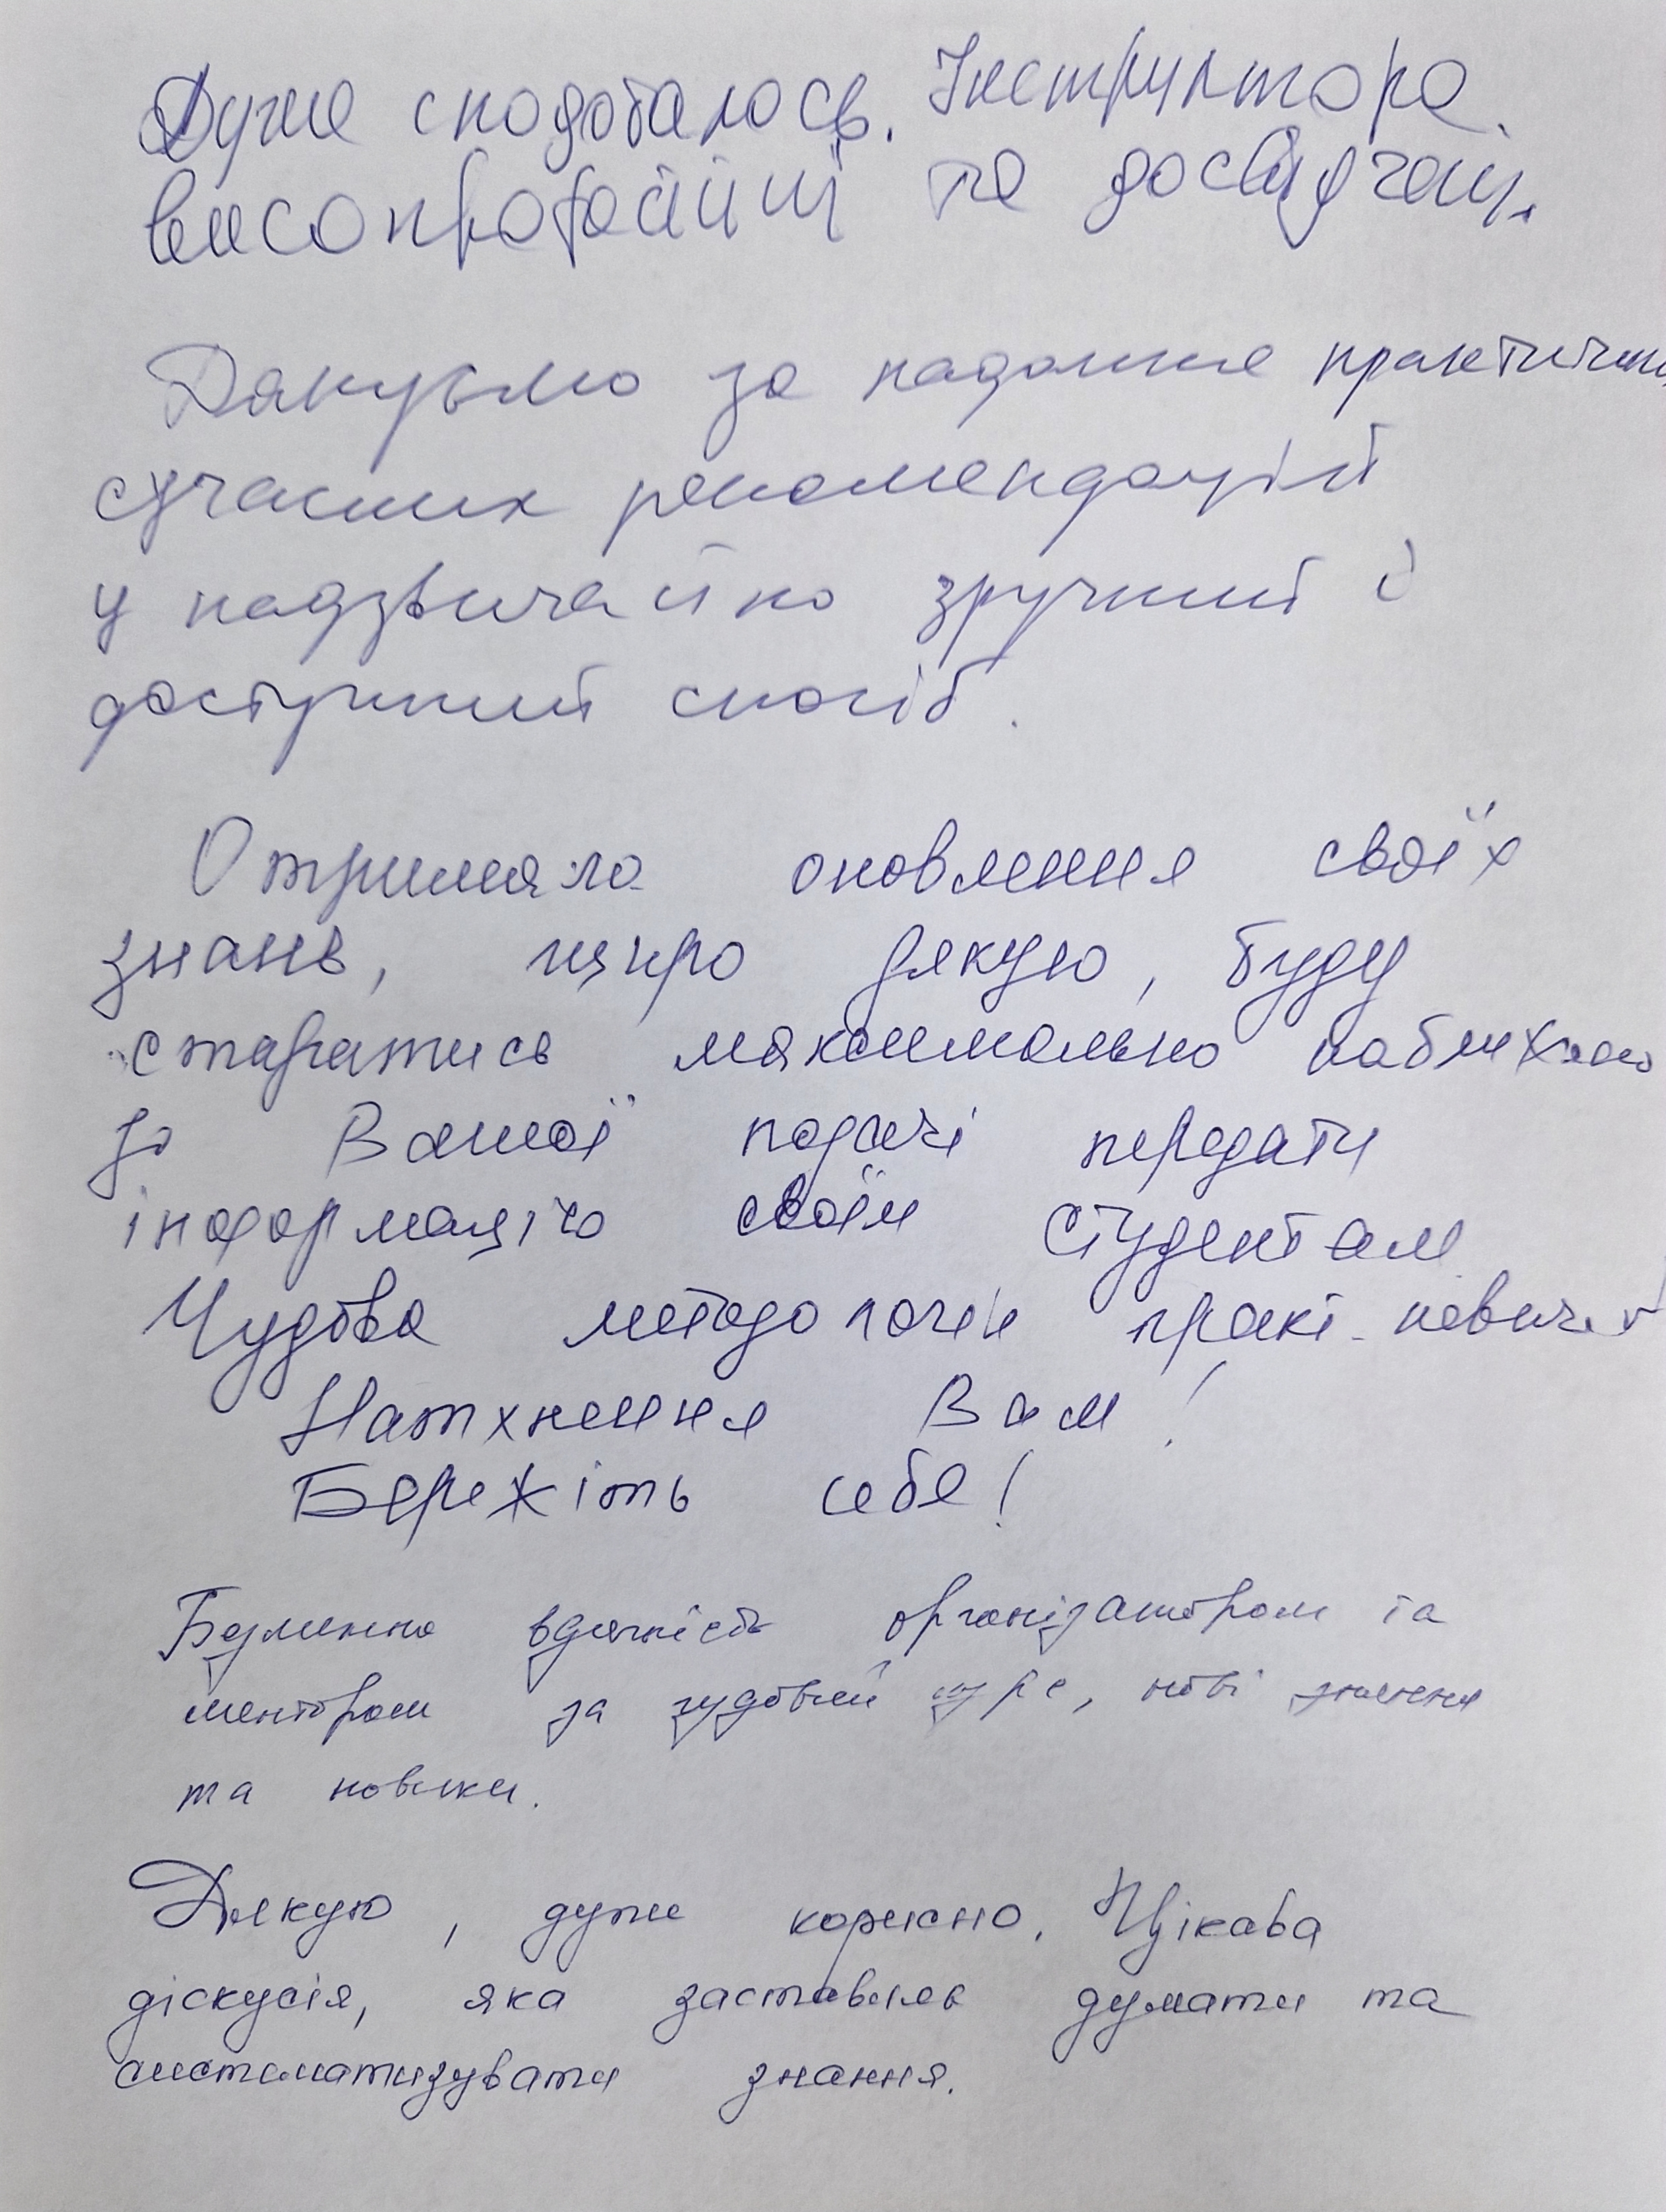 Дуже сподобалось. Інструктора
високопрофесійні та досвідчені.
Дякуємо за надання практичних
сучасних рекомендацій
у надзвичайно зручний і
доступний спосіб.
Отримала оновлення своїх
знань, щиро дякую, буду
старатись максимально наближено
до Вашої подачі передати
інформацію своїм студентам
Чудова методологія практ. навичок
Натхнення Вам!
Бережіть себе!
Безмежно вдячність організаторам та
менторам за чудовий курс, нові знання
та навики.
Дякую, дуже корисно. Цікава
діскусія, яка заставляє думати та
систематизувати знання.